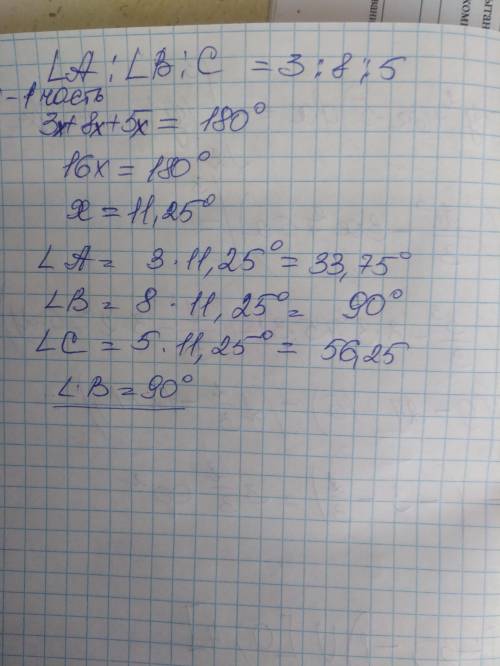 ∠A : ∠B : C = 3 : 8 : 5
- 1 часть
3x + 8x + 5x = 180°
16x = 180°
x = 11,25°
∠A = 3 · 11,25° = 33,75°
∠B = 8 · 11,25° = 90°
∠C = 5 · 11,25° = 56,25
∠B = 90°